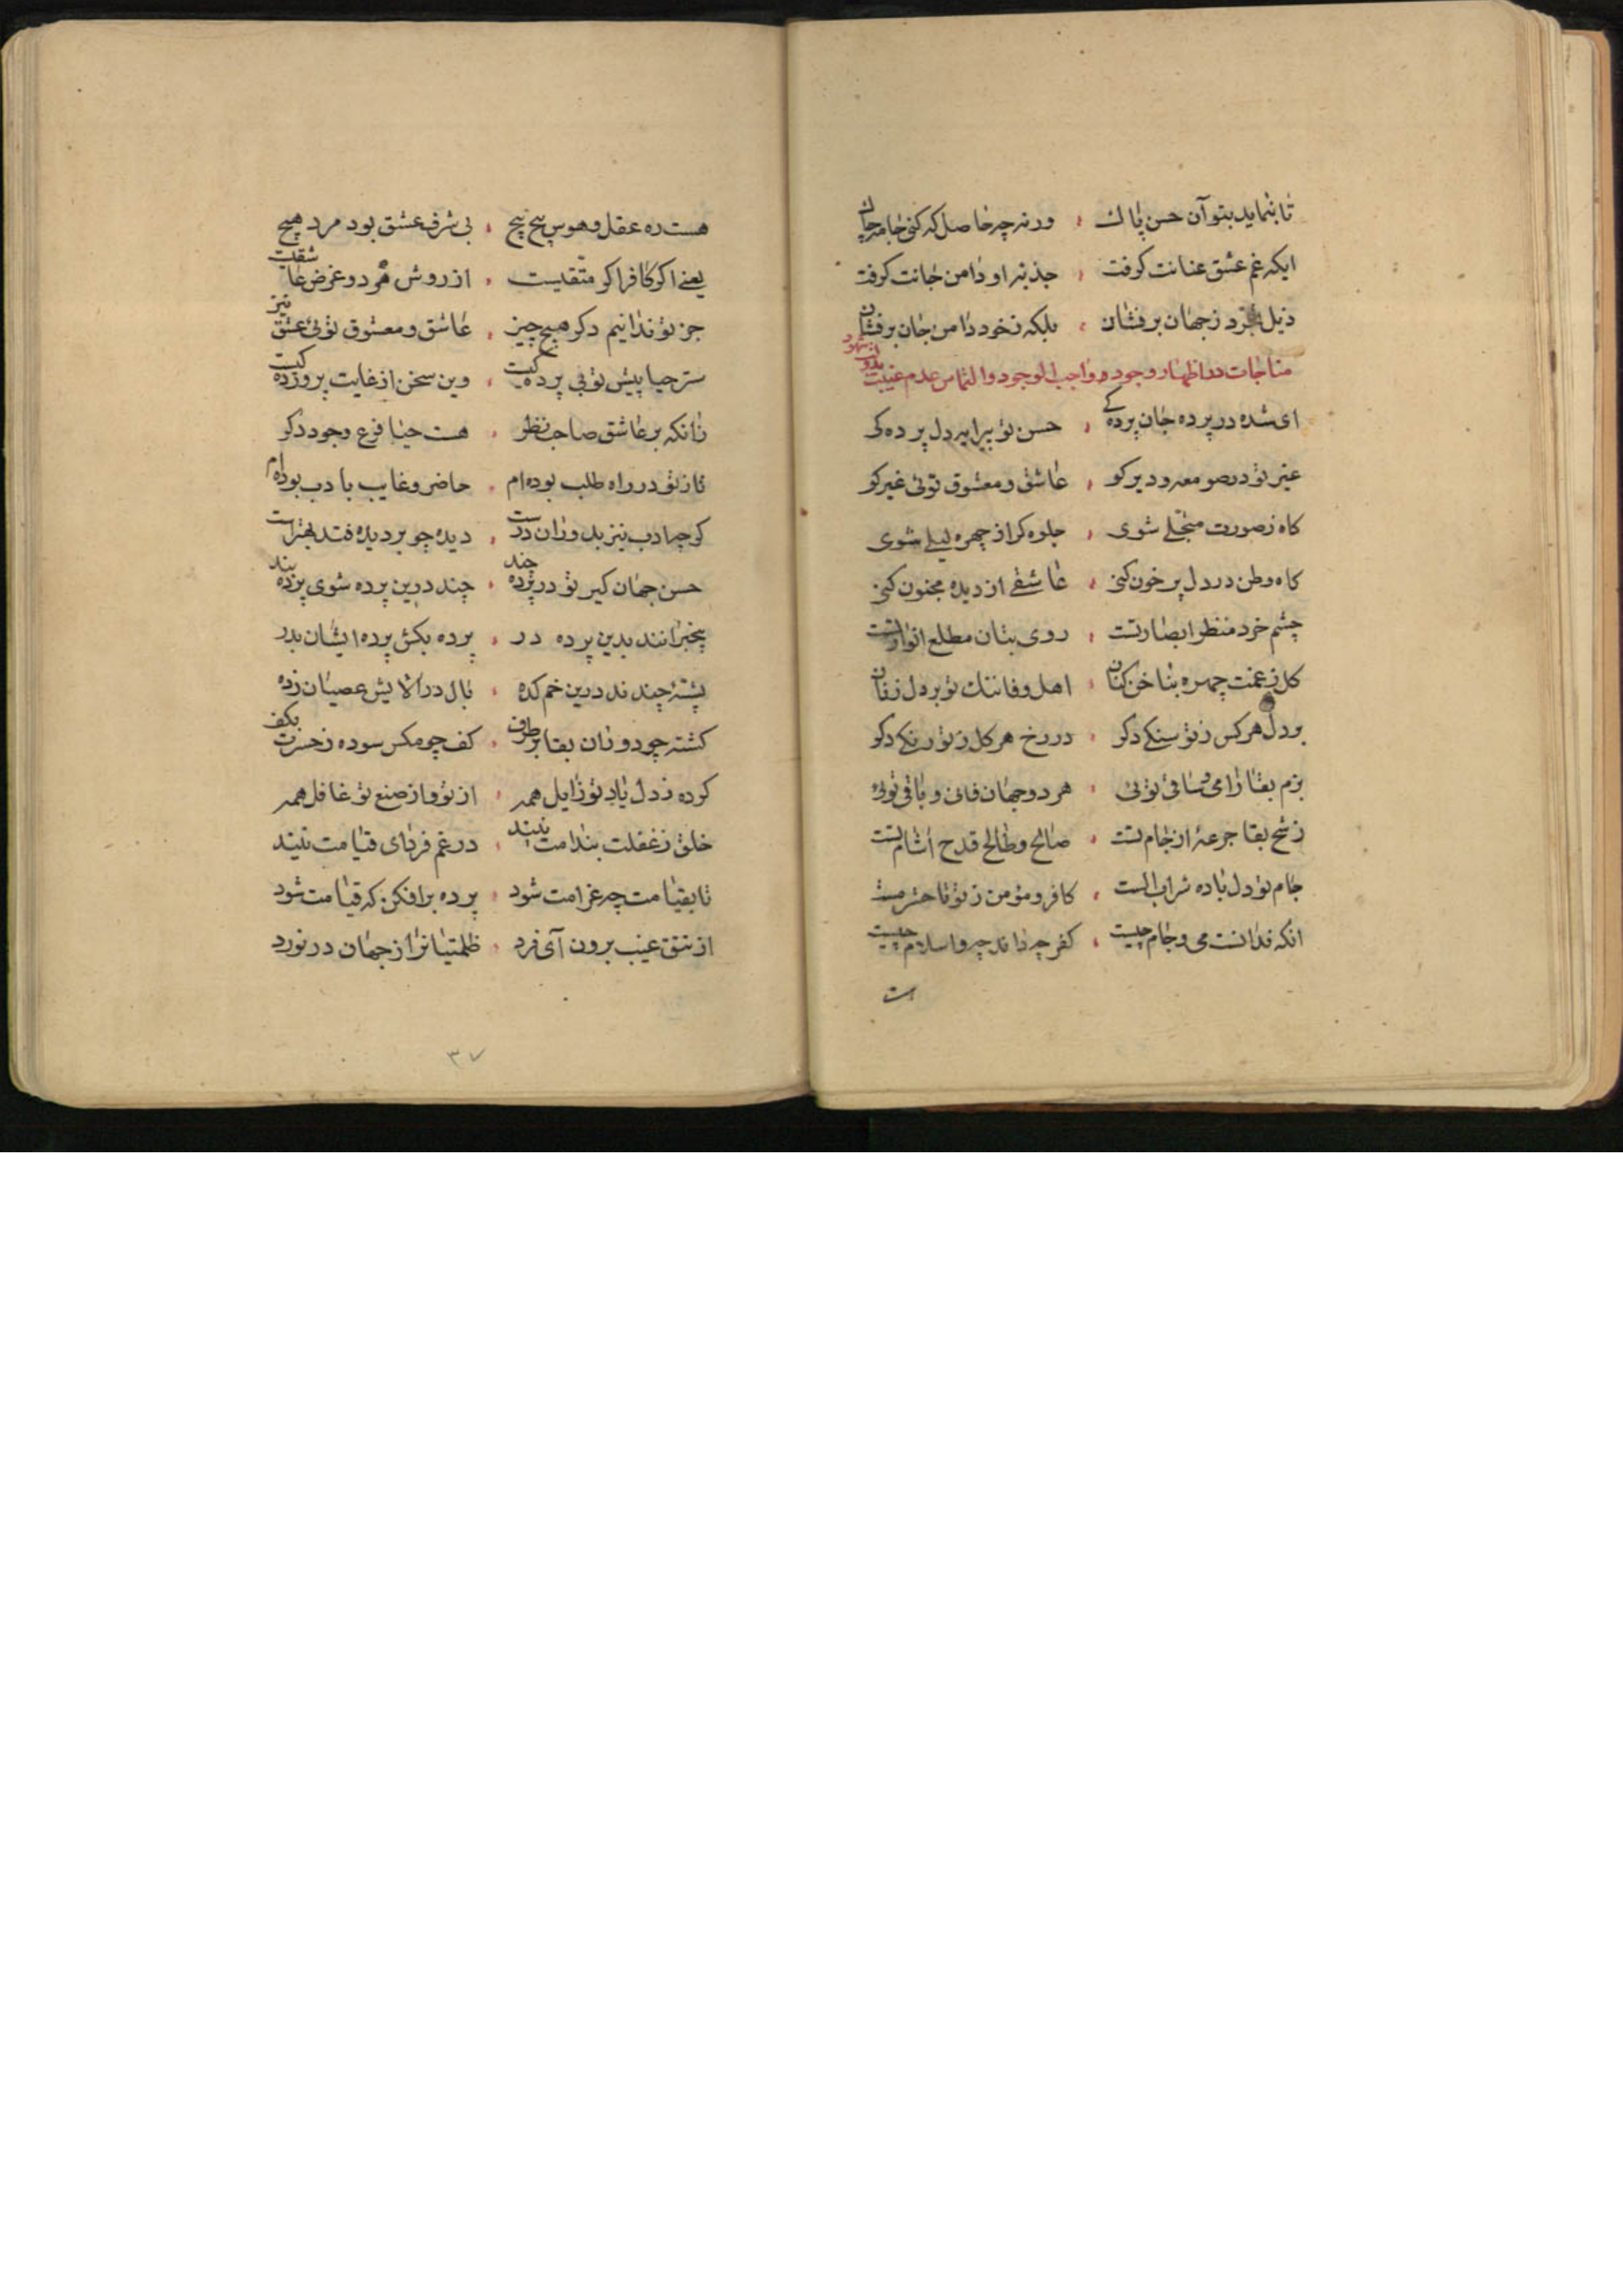 تا بنماید بتو آن حسن پاک ورنه چه حاصل که کنی جامه چاک
ایکه غم عشق عنانت کرفت جذبه او دامن جانت کرفت
ذیل تجرد زجهان برفشان بلکه زخود دامن جان برفشان
مناجات در اظهار وجود واجب الوجود والتماس عدم غیبت بدوان شهود
ای شده در پرده جان پرده کی حسن تو پیرایه دل پرده کی
غیر تو در صومعه و دیر کو عاشق و معشوق توئی غیر کو
کاه زصورت متجلی شوی جلوه کر از چهره لیلی شوی
کاه وطن در دل پر خون کنی عاشقی از دیده مجنون کنی
چشم خرد منظر ابصار تست روی بتان مطلع انوار تست
کل زغمت چهره بناخن کنان اهل وفا سنک تو بر دل زنان
بر دل هر کس زتو سنکی دکر در رخ هر کل زتو رنکی دکر
بزم بقا را می و ساقی توئی هر دو جهان فانی و باقی توئی
رشح بقا جرعهٔ از جام تست صالح و طالح قدح آشام تست
جام تو دل باده شراب الست کافر و مؤمن زتو تا حشر مست
انکه ندانست می و جام چیست کفر چه داند چه و اسلام چیست
است
هست ره عقل و هوس پیچ پیچ بی شرف عشق بود مرد هیچ
یعنی اکر کافر اکر متقیست از روش هر دو غرض عاشقیست
جز تو ندانیم دکر هیچ چیز عاشق و معشوق توئی عشق نیز
ستر حیا پیش تو بی پرده کیست وین سخن از غایت پرورده کیست
زانکه بر عاشق صاحب نظر هست حیا فرع وجود دکر
تا ز تو در راه طلب بوده ام حاضر و غایب بادب بوده ام
کر چه ادب نیز بدوران درست دیده چو بر دیده فتد بهتر است
حسن جهان کیر تو در پرده چند چند درین پرده شوی پرده بند
بیخبرانند بدین پرده در پرده بکش پرده ایشان بدر
پشهٔ چندند درین خم کده بال در آلایش عصیان زده
کشته چو دونان بقا بر طرف کف چو مکس سوده زحسرت بکف
کرده زدل یاد تو زایل همه از تو و از صنع تو غافل همه
خلق زغفلت بندامت نیند در غم فردای قیامت نیند
تا بقیامت چه غرامت شود پرده برافکن که قیامت شود
از تتق غیب برون آی فرد ظلمتیانرا از جهان در نورد
۳۷